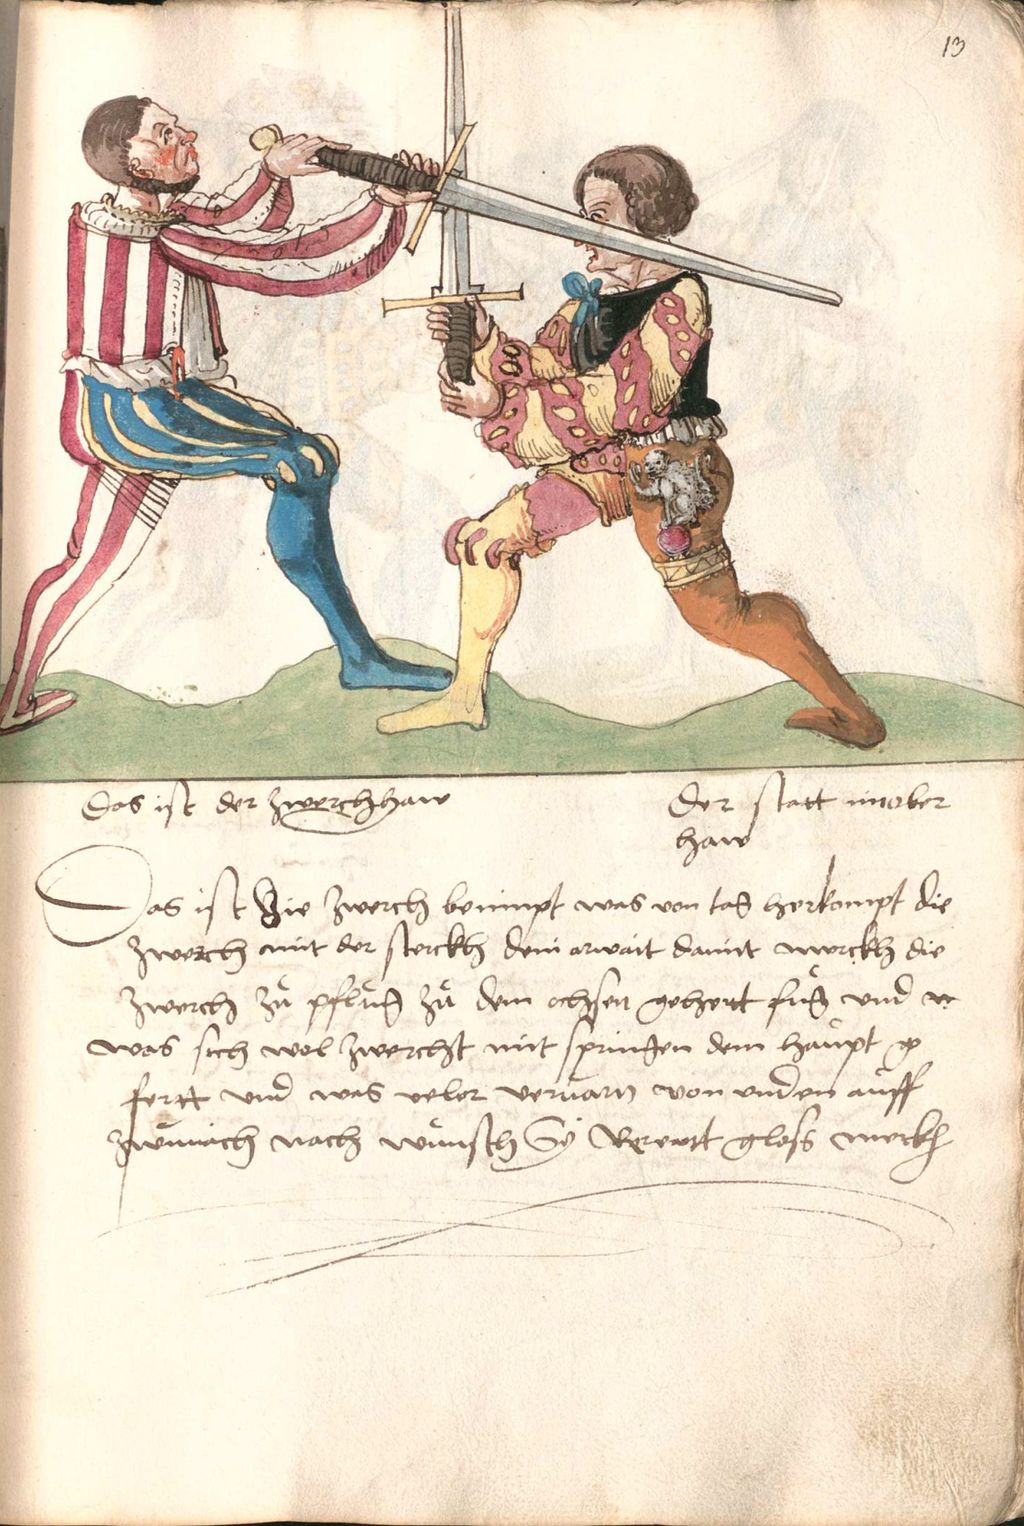 13
Das ist der zwerchhaw
Der statt im ober
haw
Das ist Die zwerch benimpt was von tag herkompt die
zwerch mit der sterckh dein arwait damit merckh die
zwerch zů pflůg zů dem ochsen gehertt fůg und w
was sich wol zwercht mit springen dem haupt g
fertt und was veler veruarn von unden auff
nach wůnsch Sy gloss merckh